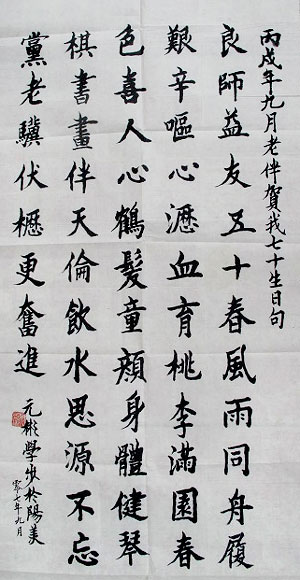 丙戌年九月老伴賀我七十生日句
良師益友五十春風雨同舟履
艱辛嘔心瀝血育桃李滿園春
色喜人心鶴髮童顏身體健琴
棋書畫伴天倫飲水思源不忘
黨老驥伏櫪更奮進
元彬學步於陽羨
零七年九月